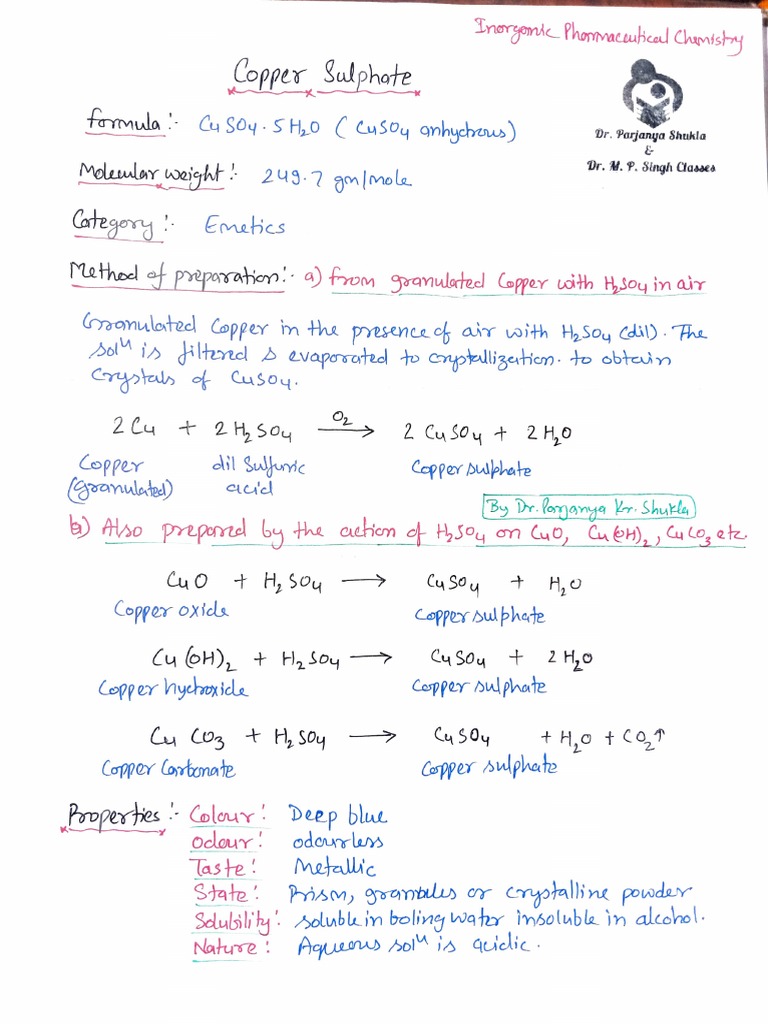 Inorganic Pharmaceutical Chemistry
Copper Sulphate
Dr. Parjanya Shukla
&
Dr. M. P. Singh Classes
formula:- CuSO4.5H2O (CuSO4 anhydrous)
Molecular weight:- 249.7 gm/mole
Category:- Emetics
Method of preparation:- a) from granulated Copper with H2SO4 in air
Granulated Copper in the presence of air with H2SO4 (dil). The
solⁿ is filtered & evaporated to crystallization. to obtain
Crystals of CuSO4.
2Cu + 2H2SO4 O2→ 2CuSO4 + 2H2O
Copper dil Sulfuric Copper sulphate
(granulated) acid
By Dr. Parjanya Kr. Shukla
b) Also prepared by the action of H2SO4 on CuO, Cu(OH)2, CuCO3 etc.
CuO + H2SO4 → CuSO4 + H2O
Copper oxide Copper sulphate
Cu(OH)2 + H2SO4 → CuSO4 + 2H2O
Copper hydroxide Copper sulphate
CuCO3 + H2SO4 → CuSO4 + H2O + CO2↑
Copper Carbonate Copper sulphate
Properties:- Colour: Deep blue
Odour: odourless
Taste: Metallic
State: Prism, granules or crystalline powder
Solubility: soluble in boling water insoluble in alcohol.
Nature: Aqueous solⁿ is acidic.